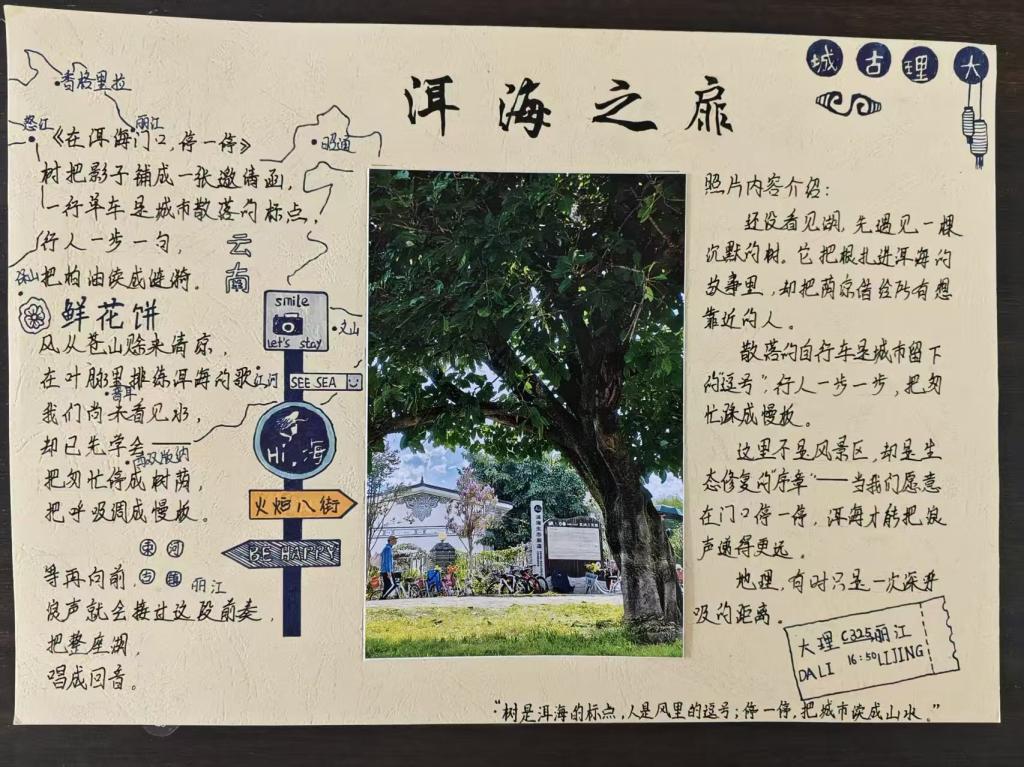 洱海之扉
大理古城
香格里拉
怒江
丽江
昭通
《在洱海门口,停一停》
树把影子铺成一张邀请函,
一行单车是城市散落的标点,
行人一步一句,
把柏油读成涟漪。
云南
保山
鲜花饼
文山
风从苍山赊来清凉,
在叶脉里排练洱海的歌
红河
普耳
我们尚未看见水,
却已先学会——
西双版纳
把匆忙停成树荫,
把呼吸调成慢板。
束河
古镇
丽江
等再向前
浪声就会接过这段前奏,
把整座湖,
唱成回音。
smile
let's stay
SEE SEA
Hi,海
火焰八街
BE HAPPY
洱海生态廊道
照片内容介绍:
还没看见湖,先遇见一棵
沉默的树。它把根扎进洱海的
故事里,却把荫凉借给所有想
靠近的人。
散落的自行车是城市留下
的“逗号”,行人一步一步,把匆
忙踩成慢板。
这里不是风景区,却是生
态修复的“序章”——当我们愿意
在门口停一停,洱海才能把浪
声递得更远。
地理,有时只是一次深呼
吸的距离。
大理 C325 丽江
DALI 16:50 LIJING
“树是洱海的标点,人是风里的逗号;停一停,把城市读成山水。”